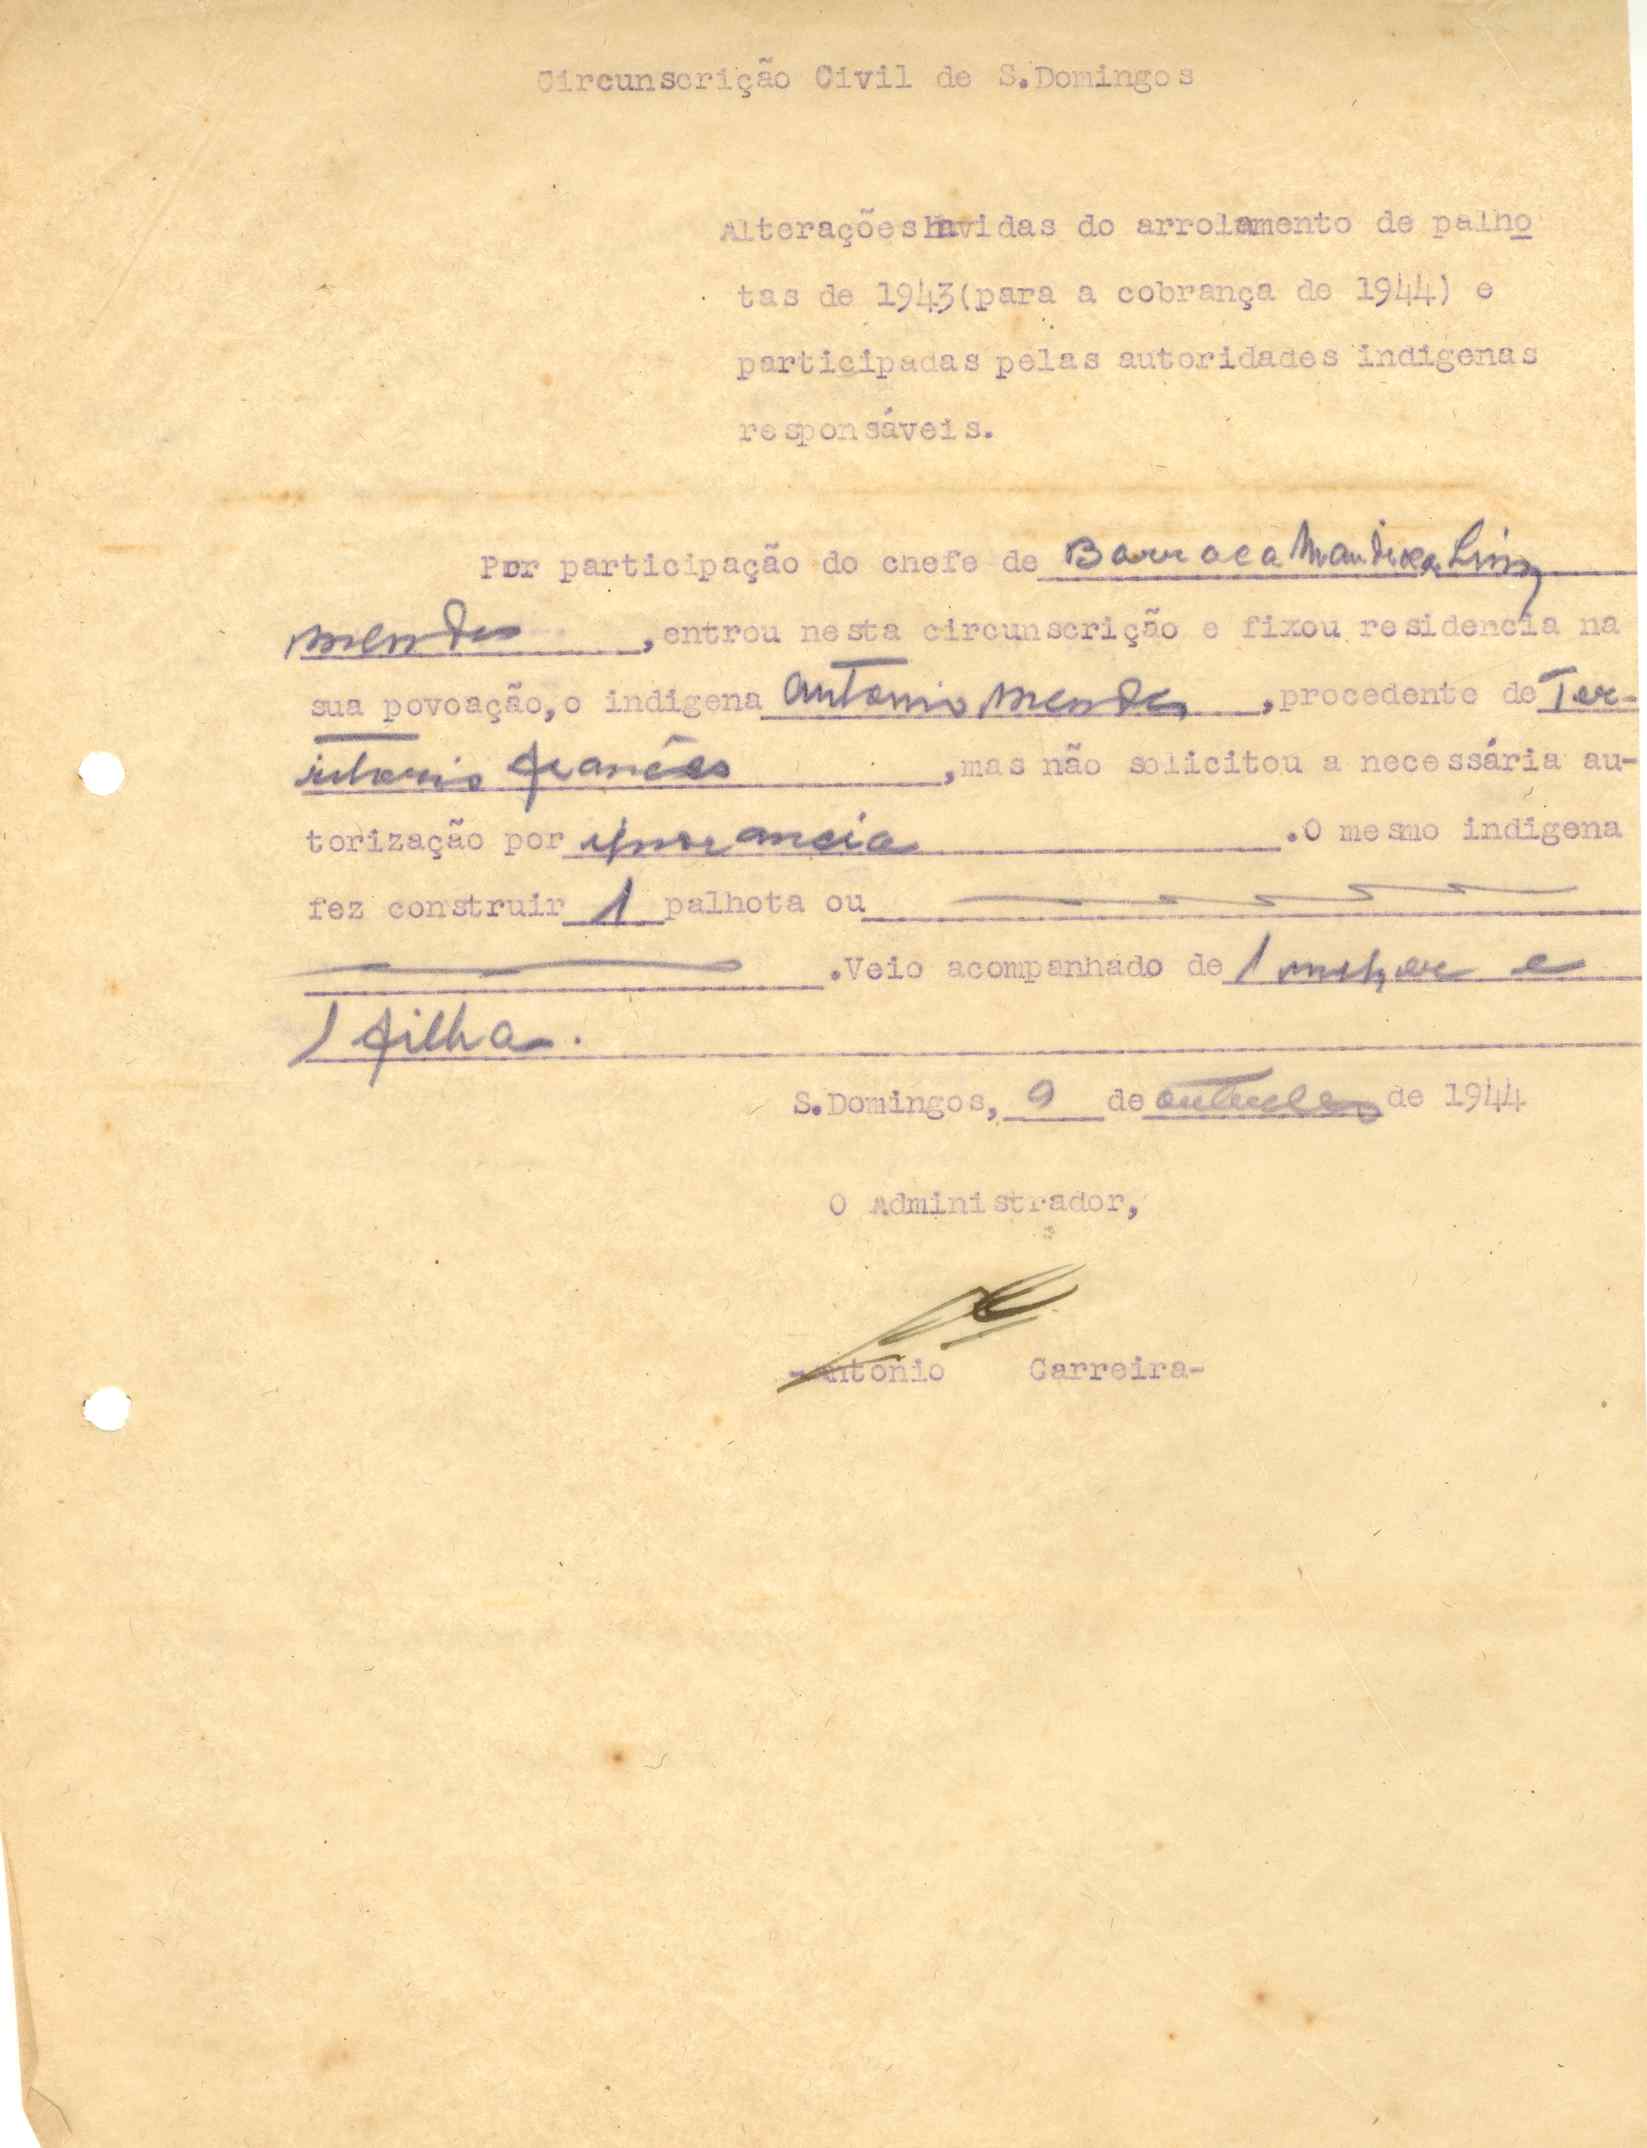 Circunscrição Civil de S.Domingos
Alterações havidas do arrolamento de palho
tas de 1943(para a cobrança de 1944) e
participadas pelas autoridades indigenas
responsáveis.
Por participação do chefe de Barraca Mandinga Luiz
Mendes ,entrou nesta circunscrição e fixou residencia na
sua povoação,o indigena Antonio Mendes ,procedente de Ter-
ritorio francês ,mas não solicitou a necessária au-
torização por ignorancia .O mesmo indigena
fez construir 1 palhota ou
.Veio acompanhado de 1 mulher e
1 filha.
S.Domingos, 9 de outubro de 1944
O Administrador,
-Antonio Carreira-